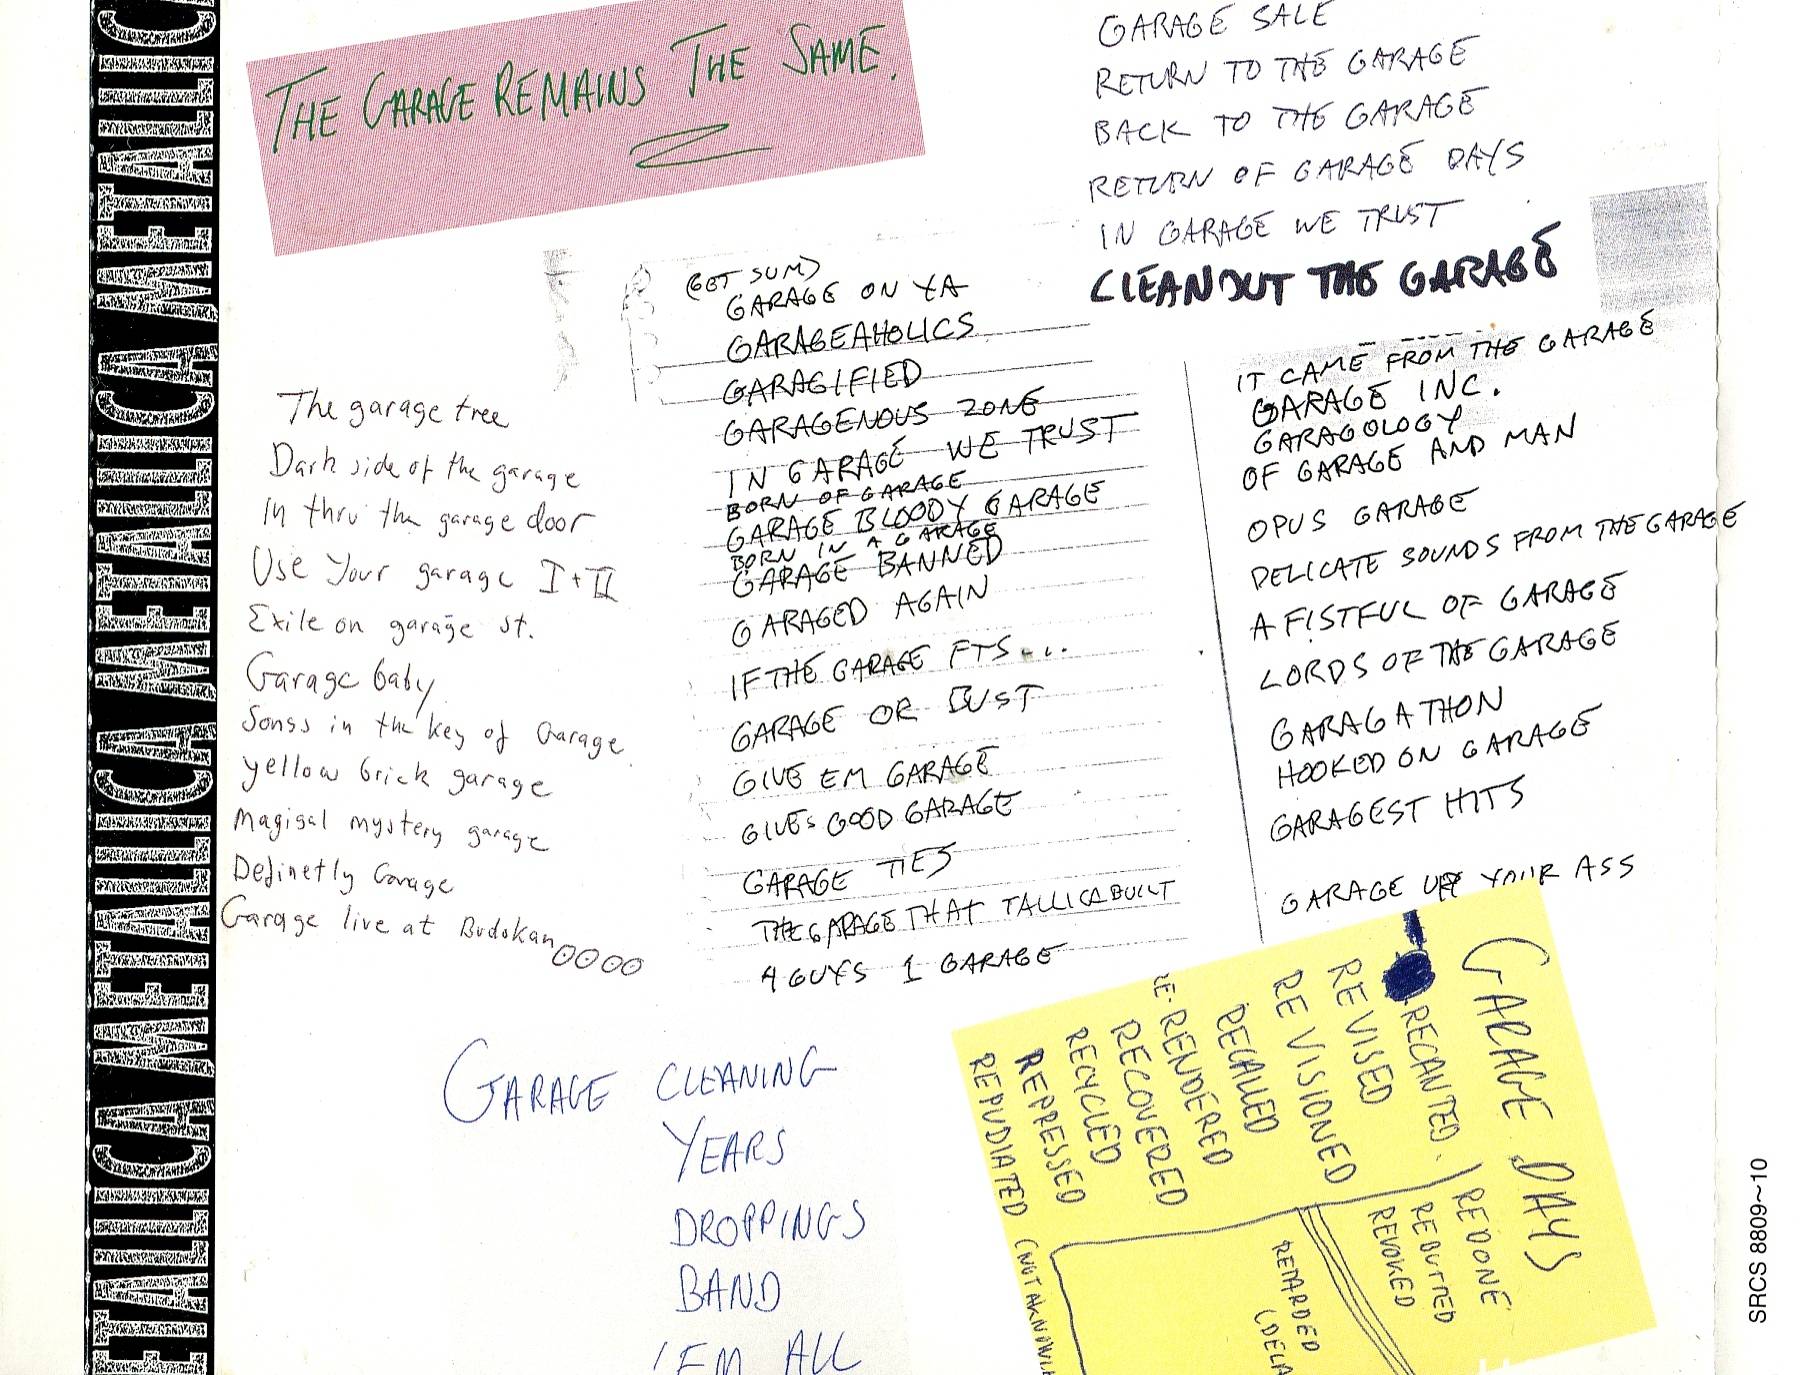 METALLICA METALLICA METALLICA METALLICA METALLICA
THE GARAGE REMAINS THE SAME.
GARAGE SALE
RETURN TO THE GARAGE
BACK TO THE GARAGE
RETURN OF GARAGE DAYS
IN GARAGE WE TRUST
CLEANOUT THE GARAGE
The garage tree
Dark side of the garage
In thru the garage door
Use Your garage I + II
Exile on garage st.
Garage baby
Songs in the key of Garage
yellow brick garage
Magical mystery garage
Definetly Garage
Garage live at Budokan
(GET SUM)
GARAGE ON YA
GARAGEAHOLICS
GARAGIFIED
GARAGENOUS ZONE
IN GARAGE WE TRUST
BORN OF GARAGE
GARAGE BLOODY GARAGE
BORN IN A GARAGE
GARAGE BANNED
GARAGED AGAIN
IF THE GARAGE FTS...
GARAGE OR BUST
GIVE EM GARAGE
GIVES GOOD GARAGE
GARAGE TIES
THE GARAGE THAT TALLICA BUILT
4 GUYS 1 GARAGE
IT CAME FROM THE GARAGE
GARAGE INC.
GARAGOLOGY
OF GARAGE AND MAN
OPUS GARAGE
DELICATE SOUNDS FROM THE GARAGE
A FISTFUL OF GARAGE
LORDS OF THE GARAGE
GARAGATHON
HOOKED ON GARAGE
GARAGEST HITS
GARAGE UP YOUR ASS
GARAGE CLEANING
YEARS
DROPPINGS
BAND
'EM ALL
GARAGE DAYS
RECANTED.
REVISED
REVISIONED
RECALLED
RE-RENDERED
RECOVERED
RECYCLED
REPRESSED
REPUDIATED (NOT AKNOWL
REDONE
REBUTTED
REVOKED
RETARDED
(DELA
SRCS 8809~10